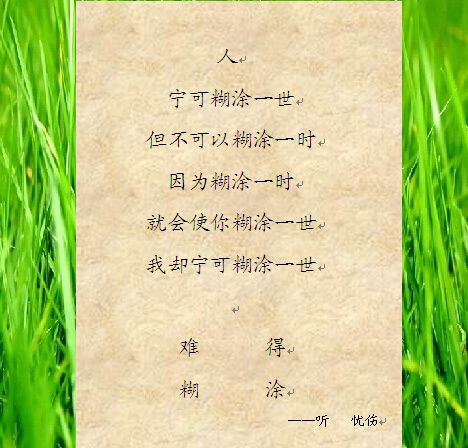 人
宁可糊涂一世
但不可以糊涂一时
因为糊涂一时
就会使你糊涂一世
我却宁可糊涂一世
难 得
糊 涂
——听 忧伤